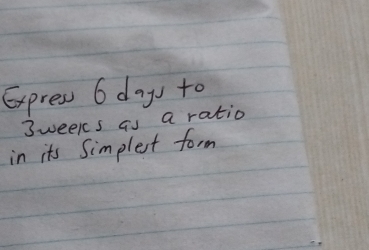 Express 6 days to
3 weeks as a ratio
in its simplest form